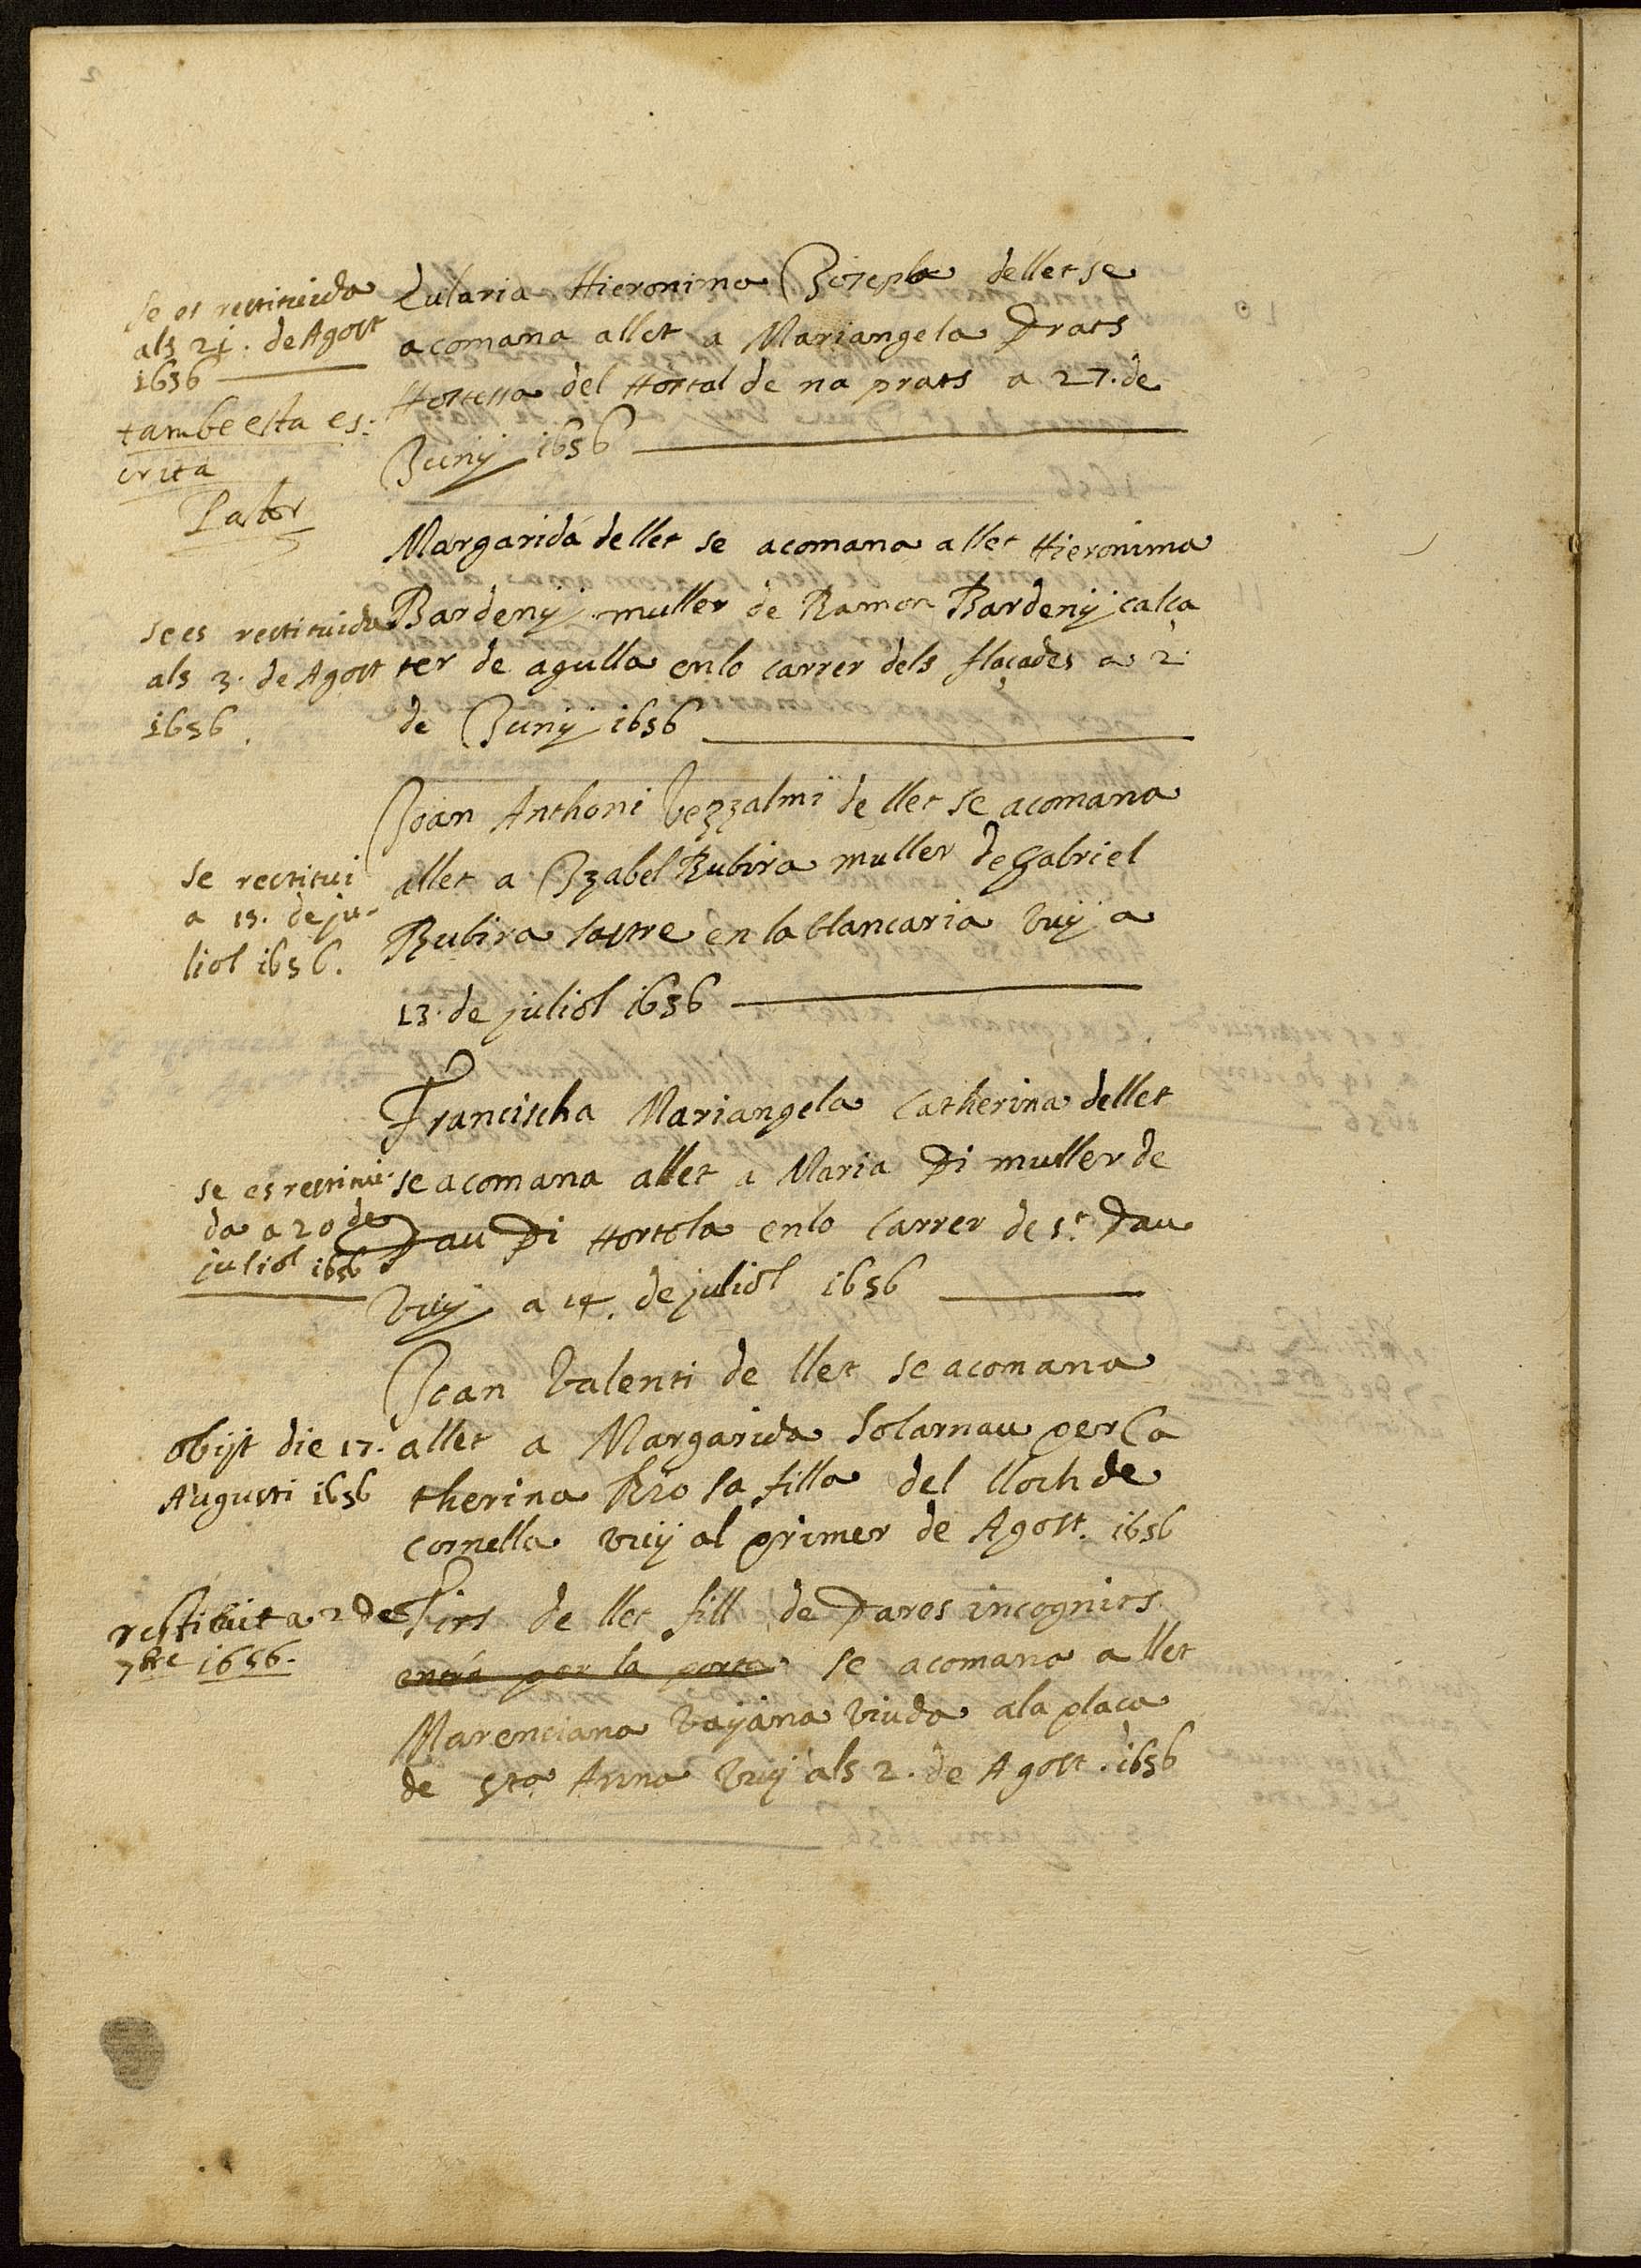 Se es restituida
als 21. de Agost
1656
tambe esta es:
crita
Pastor
Eularia Hieronima Josepha de llet se
acomana a llet a Mariangela Prats
Hortessa del Hortal de na prats a 27. de
Juny 1656
Se es restituida
als 3. de Agost
1656.
Margarida de llet se acomana a llet Hieronima
Bardeny muller de Ramon Bardeny calça
ter de agulla en lo carrer dels flaçades a 2
de Juny 1656
Se restitui
a 13. de ju-
liol 1656.
Joan Anthoni Vezzalmi de llet se acomana
a llet a Izabel Rubira muller de Gabriel
Rubira sastre en la blancaria vuy a
13. de juliol 1656
se es restitui-
da a 20 de
juliol 1656
Francischa Mariangela Catherina de llet
se acomana a llet a Maria Pi muller de
Pau Pi Hortola en lo carrer de St. Pau
vuy a 14. de juliol 1656
obijt die 17.
Augusti 1656
Joan Valenti de llet se acomana
a llet a Margarida Solarnau per Ca
therina Rio sa filla del lloch de
Cornella vuy al primer de Agost. 1656
restituit a 2 de
7bre 1656.
Tirs de llet fill de Pares incognits
entrá per la porta se acomana a llet
Marenciana Vayana viuda a la plaça
de Sta Anna vuy als 2. de Agost. 1656